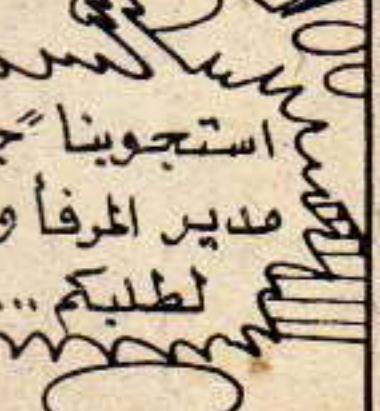 استجوبنا "ج
مدير المرفأ و
لطلبكم...